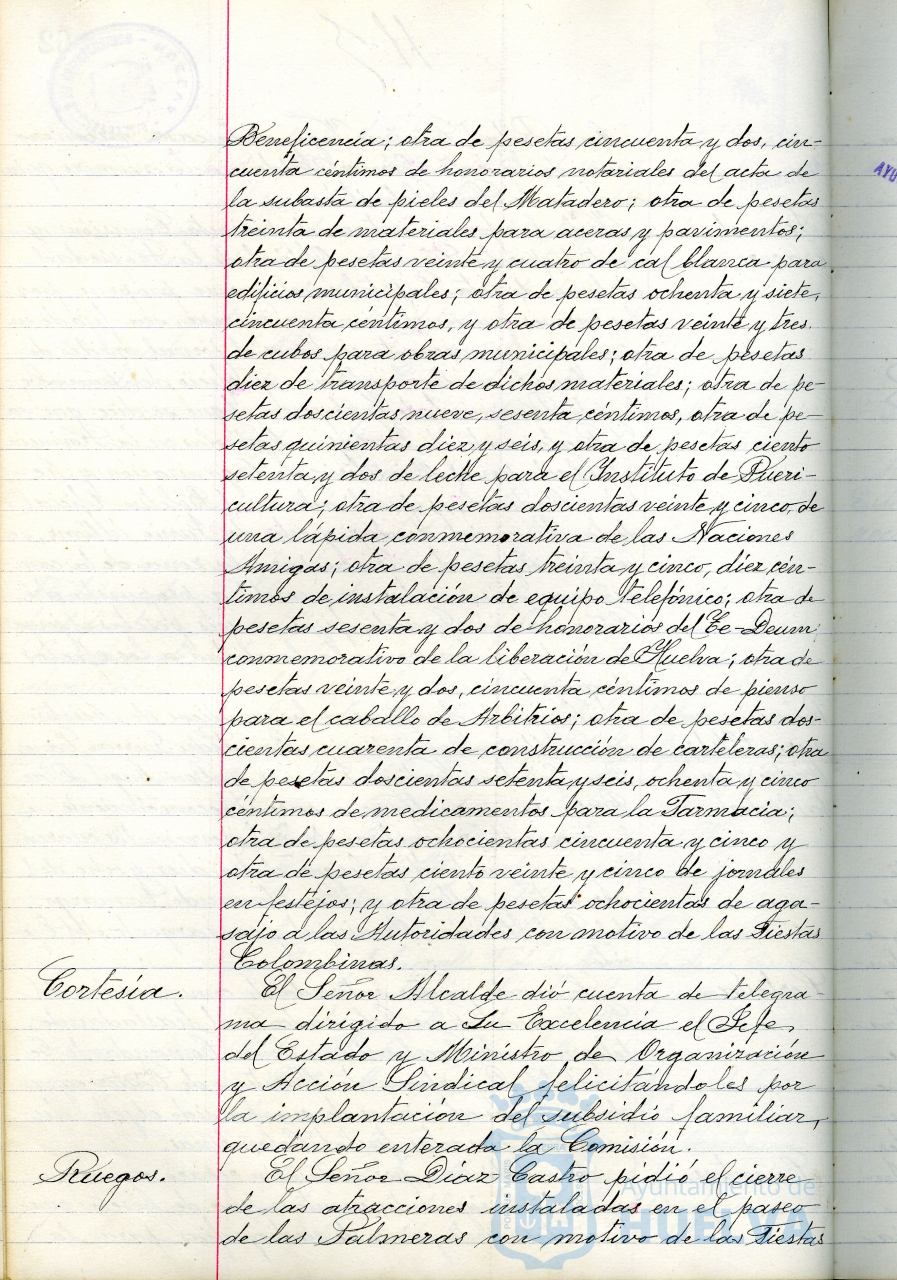 Beneficencia; otra de pesetas cincuenta y dos, cin-
cuenta céntimos de honorarios notariales del acta de
la subasta de pieles del Matadero; otra de pesetas
treinta de materiales para aceras y pavimentos;
otra de pesetas veinte y cuatro de cal blanca para
edificios municipales; otra de pesetas ochenta y siete,
cincuenta céntimos, y otra de pesetas veinte y tres
de cubos para obras municipales; otra de pesetas
diez de transporte de dichos materiales; otra de pe-
setas doscientas nueve, sesenta céntimos, otra de pe-
setas quinientas diez y seis, y otra de pesetas ciento
setenta y dos de leche para el Instituto de Pueri-
cultura; otra de pesetas doscientas veinte y cinco, de
una lápida conmemorativa de las Naciones
Amigas; otra de pesetas treinta y cinco, diez cén-
timos de instalación de equipo telefónico; otra de
pesetas sesenta y dos de honorarios del Te-Deum
conmemorativo de la liberación de Huelva; otra de
pesetas veinte y dos, cincuenta céntimos de pienso
para el caballo de Arbitrios; otra de pesetas dos-
cientas cuarenta de construcción de carteleras; otra
de pesetas doscientas setenta y seis, ochenta y cinco
céntimos de medicamentos para la Farmacia;
otra de pesetas ochocientas cincuenta y cinco y
otra de pesetas ciento veinte y cinco de jornales
en festejos; y otra de pesetas ochocientas de aga-
sajo a las Autoridades con motivo de las Fiestas
Colombinas.
Cortesía. El Señor Alcalde dió cuenta de telegra-
ma dirigido a Su Excelencia el Jefe
del Estado y Ministro de Organización
y Acción Sindical felicitándoles por
la implantación del subsidio familiar,
quedando enterada la Comisión.
Ruegos. El Señor Díaz Castro pidió el cierre
de las atracciones instaladas en el paseo
de las Palmeras con motivo de las Fiestas
AYU
Ayuntamiento de
HUELVA